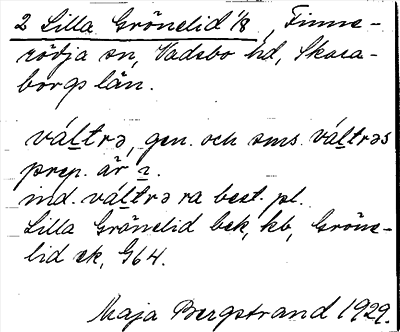 2 Lilla Grönelid 1/8, Finne-
rödja sn, Vadsbo hd, Skara-
borgs län.
váltrə, gen. och sms. váltrəs
prep. är
ind. váltrə ra best. pl.
Lilla Grönelid bek, kb, Gröne-
lid ek, G64.
Maja Bergstrand 1929.